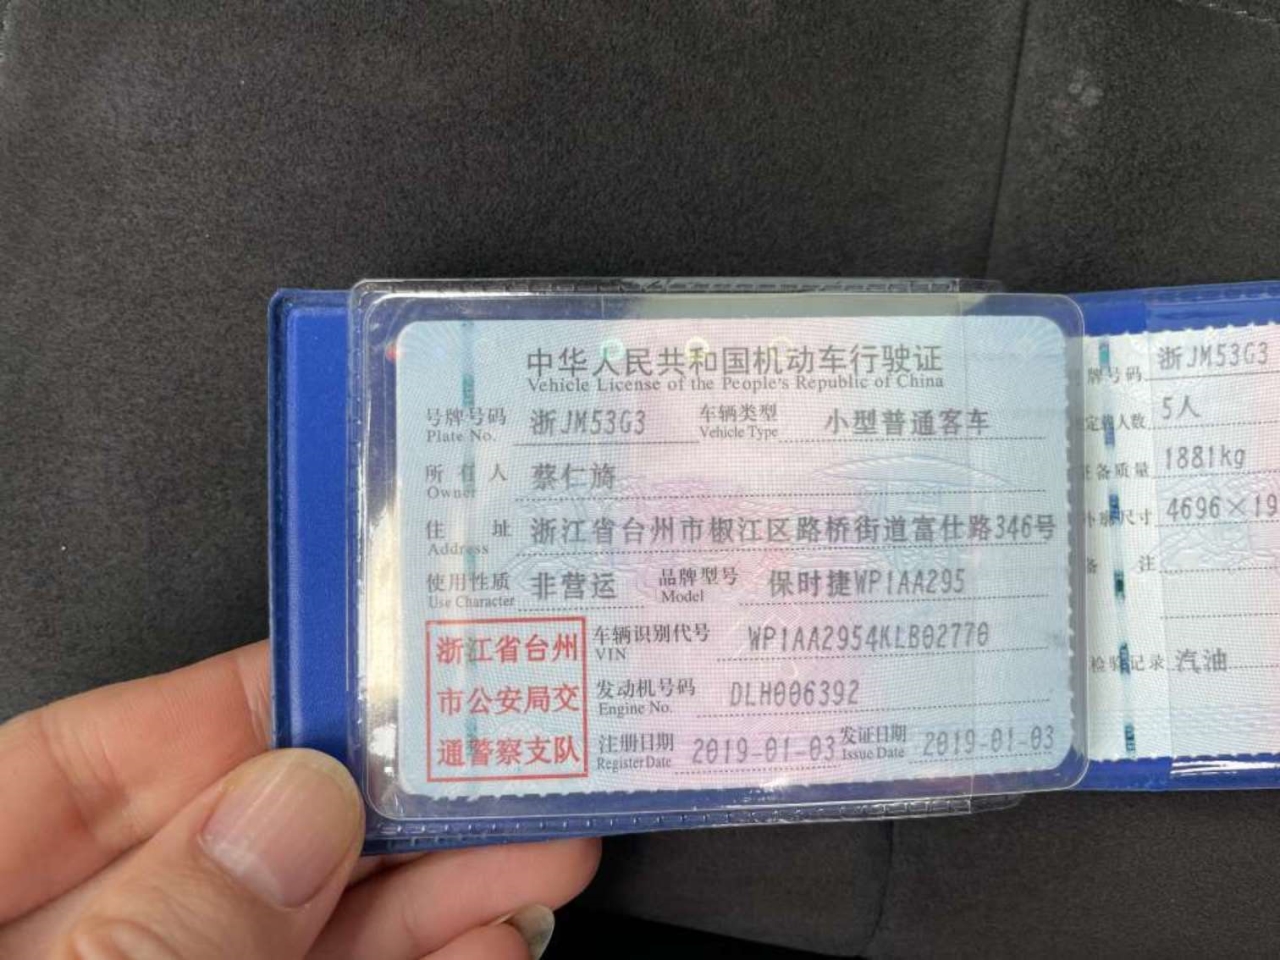 中华人民共和国机动车行驶证
Vehicle License of the People's Republic of China
号牌号码 浙JM53G3 车辆类型 小型普通客车
Plate No. Vehicle Type
所有人 蔡仁旖
Owner
住址 浙江省台州市椒江区路桥街道富仕路346号
Address
使用性质 非营运 品牌型号 保时捷WP1AA295
Use Character Model
浙江省台州
市公安局交
通警察支队
车辆识别代号 WP1AA2954KLB02770
VIN
发动机号码 DLH006392
Engine No.
注册日期 2019-01-03 发证日期 2019-01-03
Register Date Issue Date
牌号码 浙JM53G3
人数 5人
备质量 1881kg
尺寸 4696×19
备注
检验记录 汽油